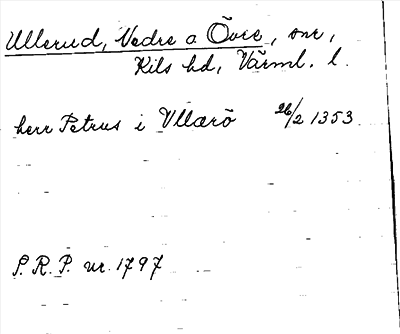 Ullerud, Nedre o Övre, snr,
Kils hd, Värml. l.
herr Petrus i Vllærö 26/2 1353
S. R. P. nr. 1797